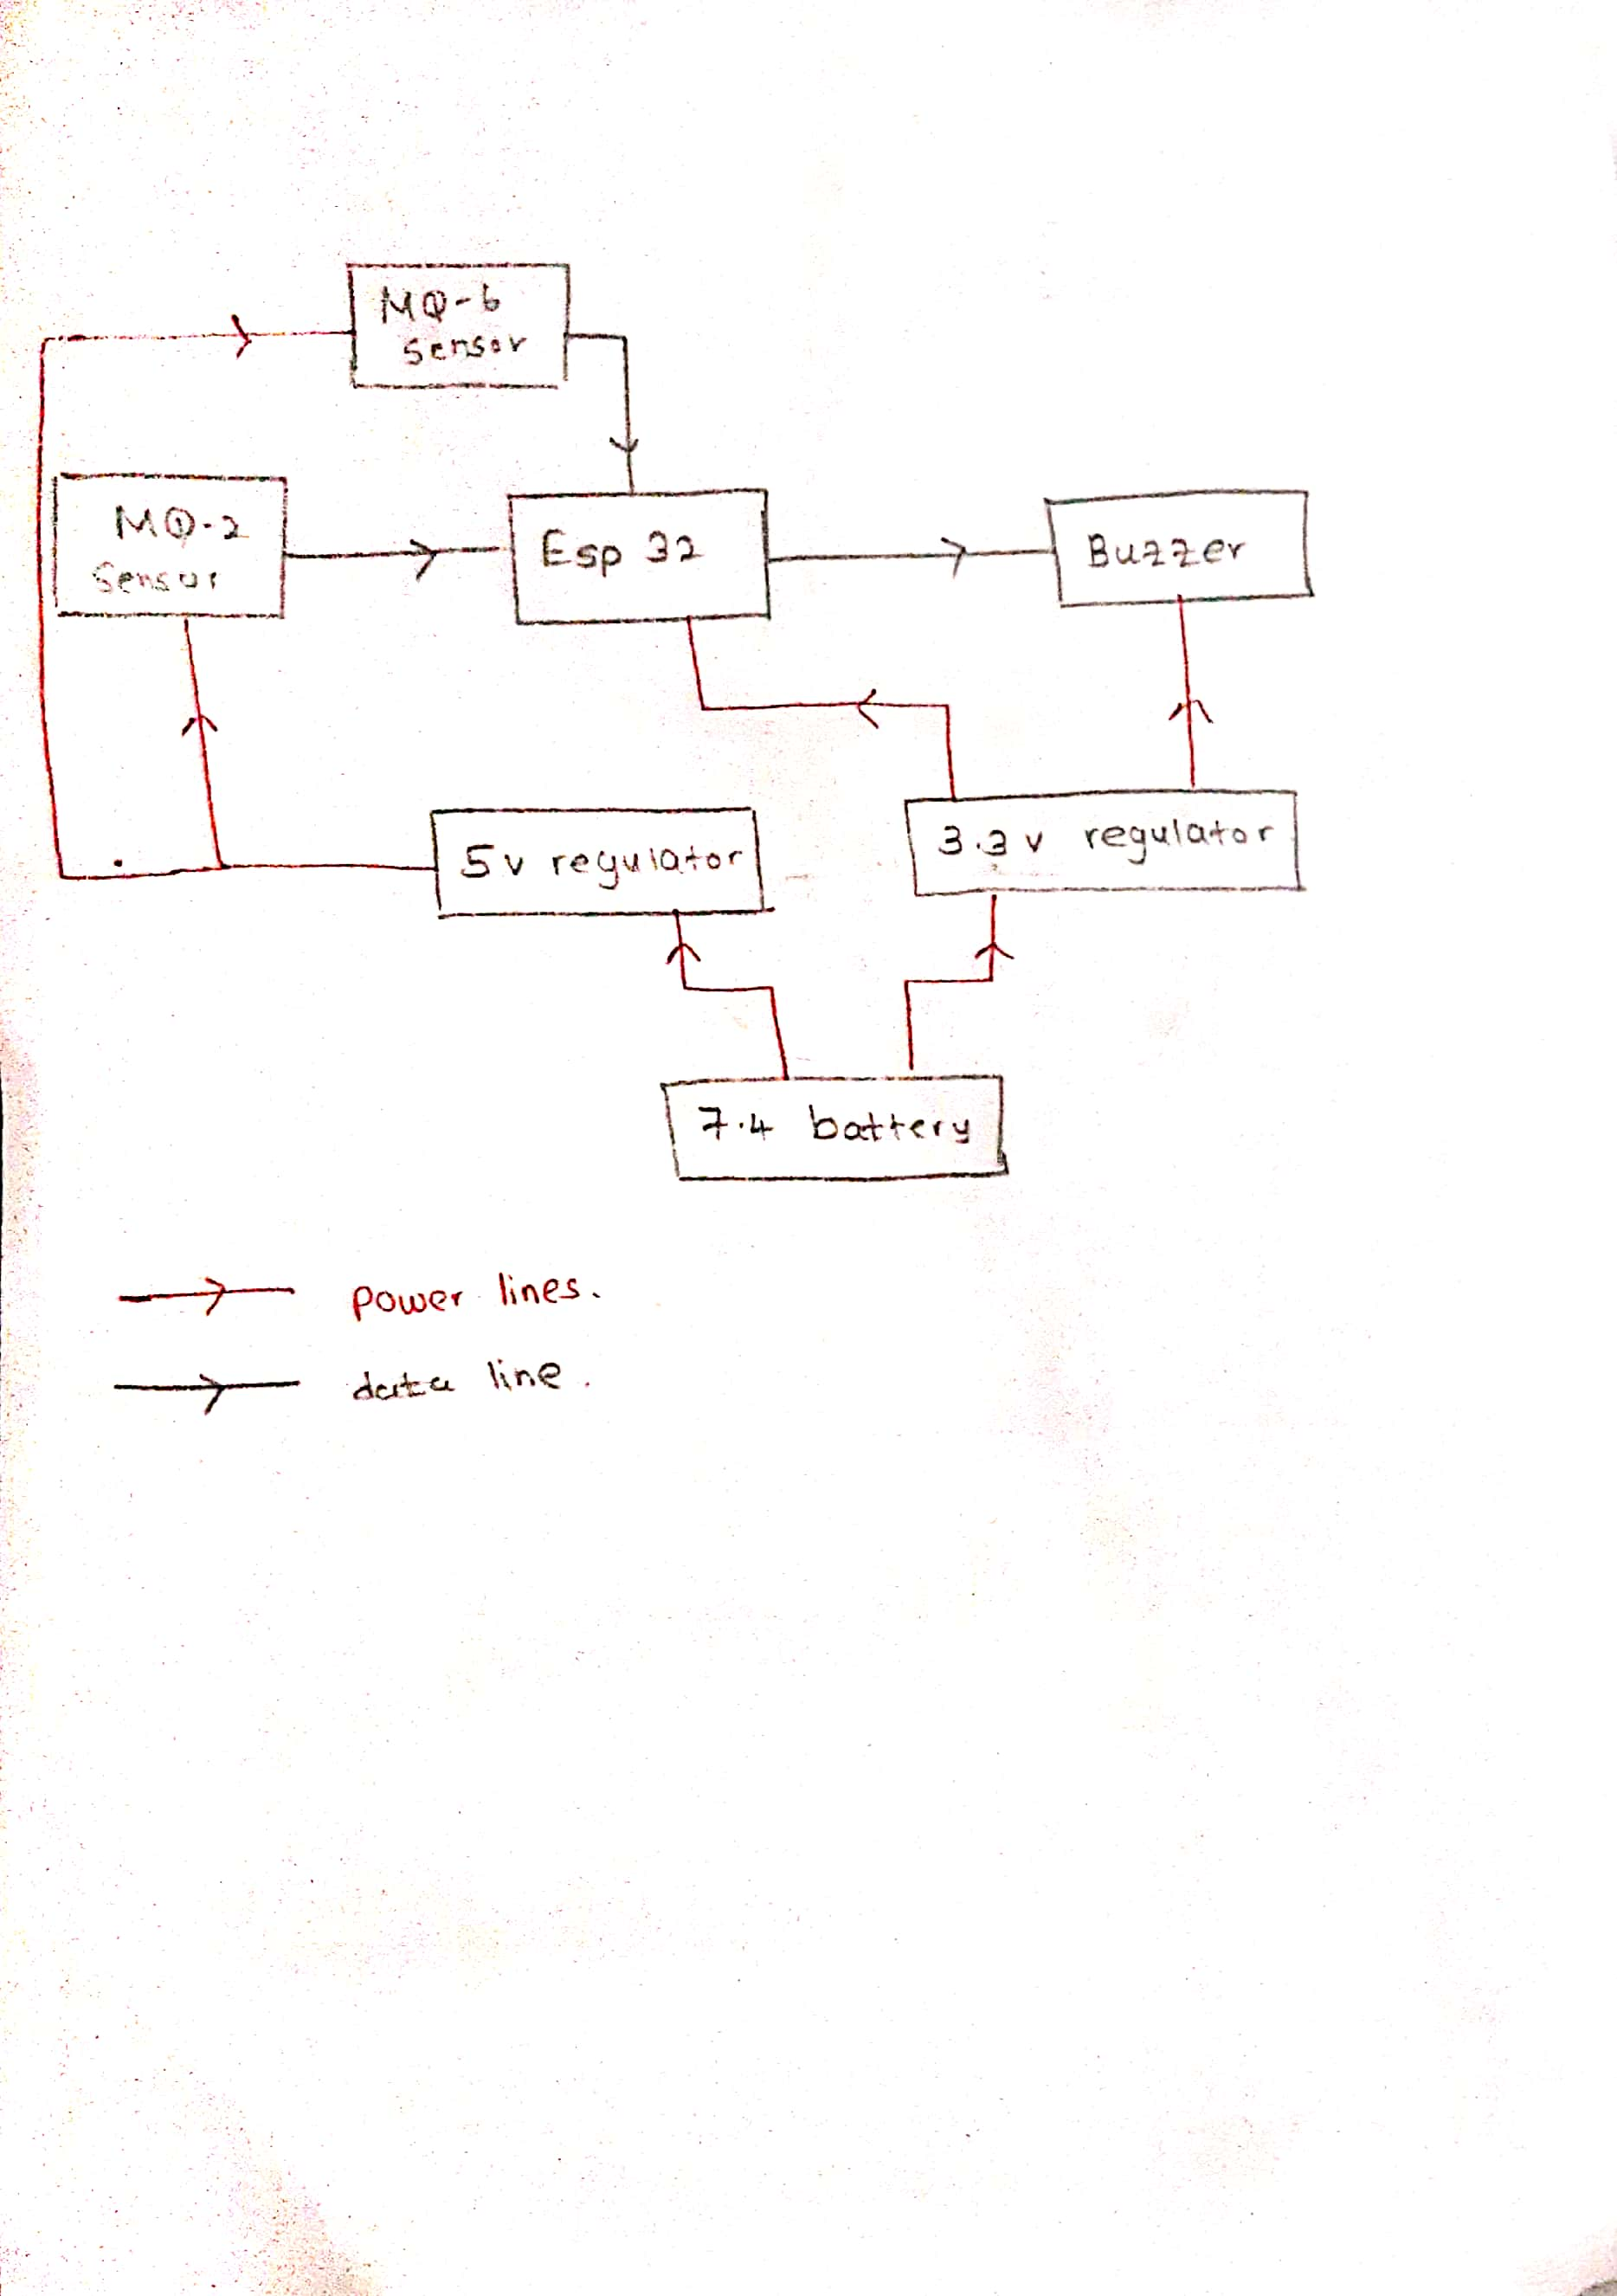 MQ-6
Sensor
MQ-2
Sensor
Esp 32
Buzzer
5v regulator
3.3v regulator
7.4 battery
power lines.
data line.